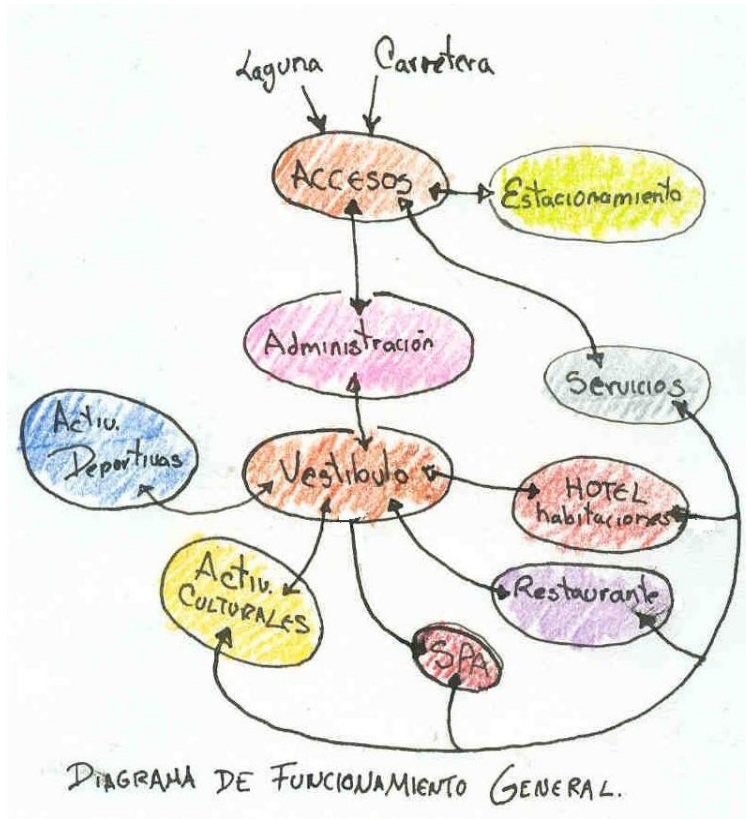 Laguna
Carretera
ACCESOS
Estacionamiento
Administración
Servicios
Activ.
Deportivas
Vestibulo
HOTEL
habitaciones
Activ.
CULTURALES
Restaurante
SPA
DIAGRAMA DE FUNCIONAMIENTO GENERAL.